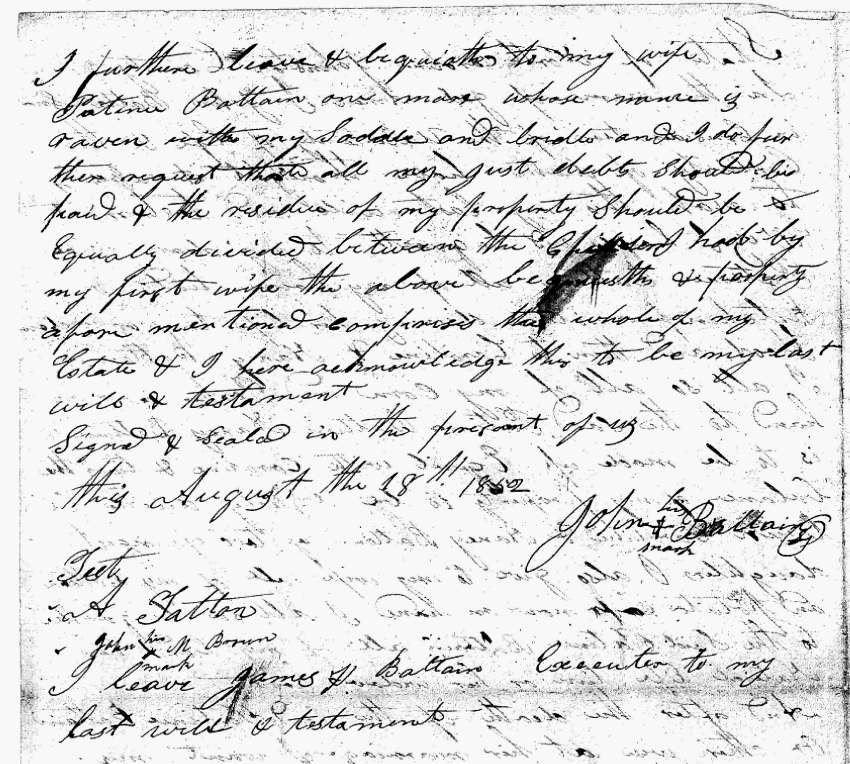 I further leave & bequieath to my wife
Patina Battain one mare whose name is
raven with my Saddle and bridle and I do fur
ther request that all my just debts should be
paid & the residue of my property should be
Equally divided between the Children had by
my first wife the above bequieths & property
afore mentioned comprises the whole of my
Estate & I here acknowledge this to be my last
will & testament
Signed & Seald in the presant of us
this August the 18th 1852
his
John + Battain
mark
Test
A Tatton
John his M Brown
mark
I leave James H. Battain Executer to my
last will & testament